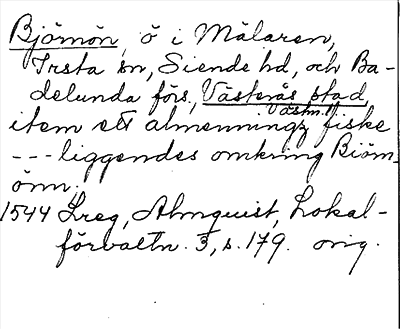 Björnön, ö i Mälaren,
Irsta sn, Siende hd, och Ba-
delunda förs., Västerås stad,
Västm.
item ett almenningz fiske
--- liggendes omkring Biöm-
önn.
1544 Lreg, Almquist, Lokal-
förvaltn. 3, s. 179. orig.